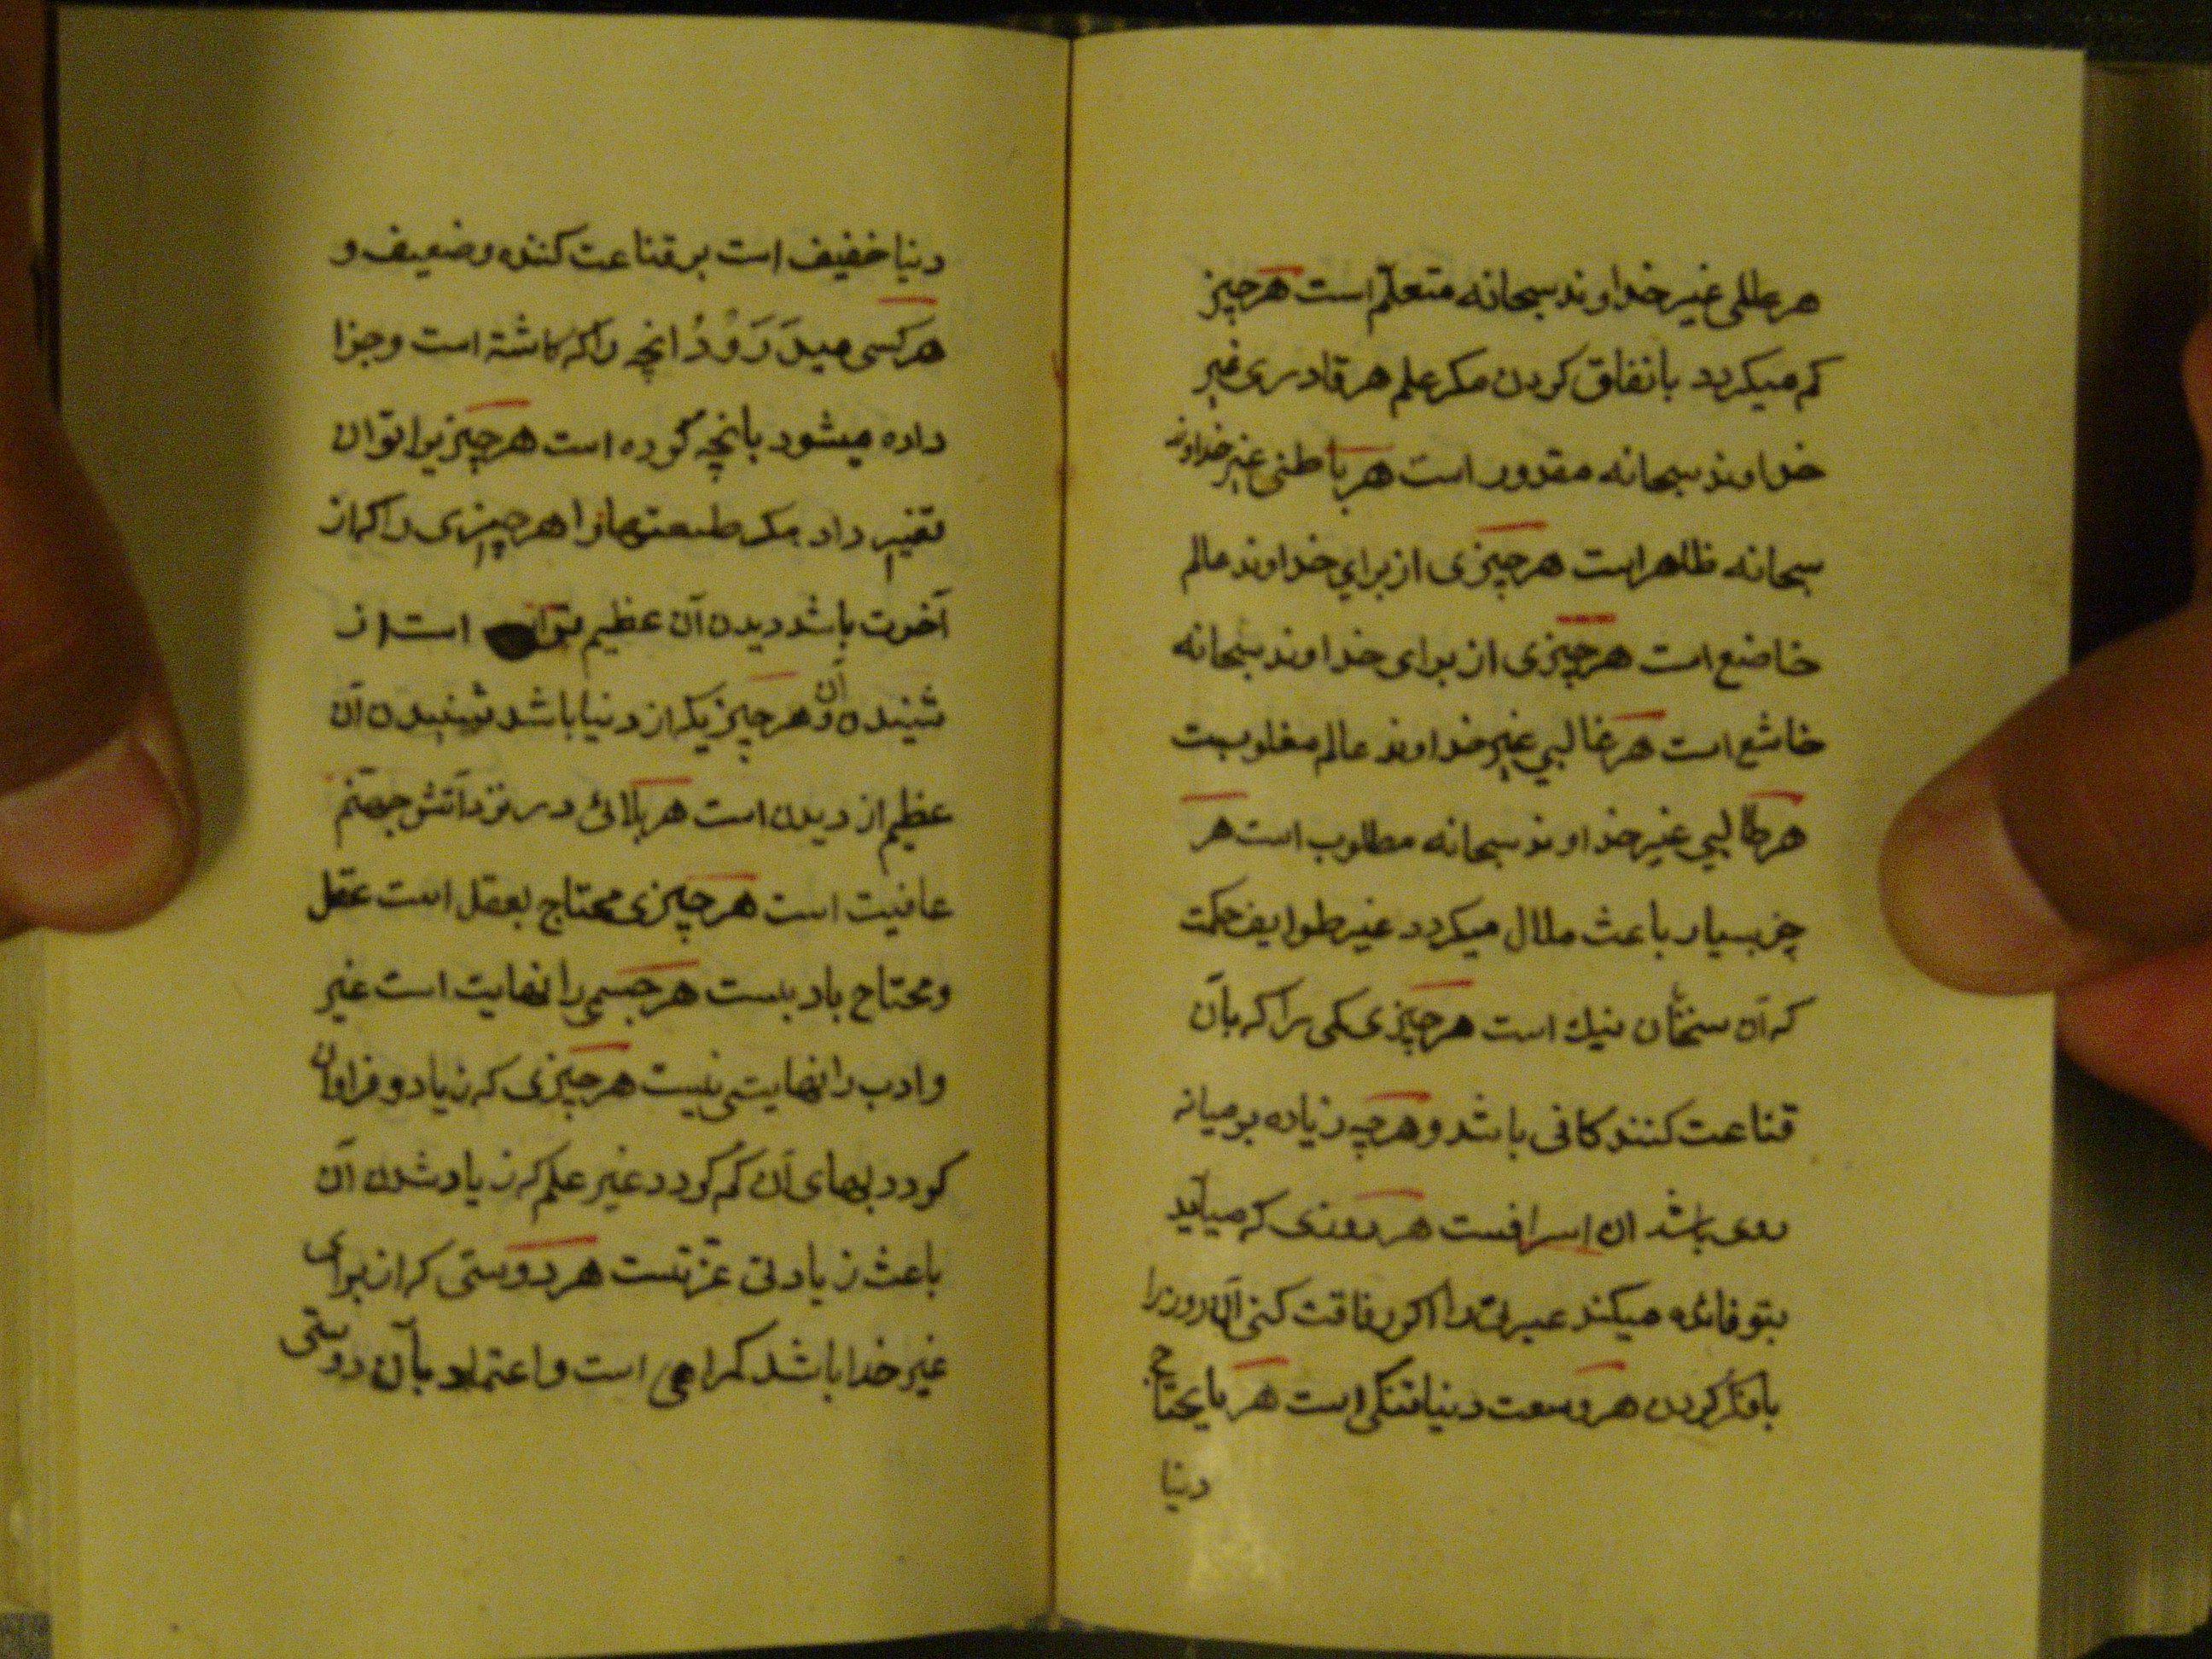 هر عالمی غیر خداوند سبحانه متعلم است هر چیز
کم میکردد بانفاق کردن مکر علم هر قادری غیر
خداوند سبحانه مقدور است هر باطنی غیر خداوند
سبحانه ظاهر است هر چیزی از برای خداوند عالم
خاضع است هر چیزی از برای خداوند سبحانه
خاشع است هر غالبی غیر خداوند عالم مغلوبست
هر طالبی غیر خداوند سبحانه مطلوب است هر
چیز بسیار باعث ملال میکردد غیر طوایف حکمت
که آن سخنان نیك است هر چیزی کمی را که بآن
قناعت کنند کافی باشد و هر چه زیاده بر میانه
روی باشد ان اسرافست هر روزی که میآید
بتو فائده میکند عبرت را اکر رفاقت کنی آن روز را
بافکر کردن هر وسعت دنیا تنکی است هر مایحتاج
دنیا
دنیا خفیف است بر قناعت کننده و ضعیف و
هر کسی میدَرَوَدُ انچه را که کاشته است و جزا
داده میشود بانچه کرده است هر چیزیرا توان
تغییر داد مکر طبیعتها را هر چیزی را که از
آخرت باشد دیدن آن عظیم تر است از
شنیدن آن و هر چیزیکه از دنیا باشد شنیدن آن
عظیم از دیدن است هر بلائی در نزد آتش جهنم
عافیت است هر چیزی محتاج بعقل است عقل
و محتاج بادبست هر جسمی را نهایت است غیر
و ادب را نهایتی نیست هر چیزی که زیاد و فراوان
کردد بهای آن کم کردد غیر علم که زیاد شدن آن
باعث زیادتی عزتست هر دوستی که از برای
غیر خدا باشد کمراهی است و اعتماد بآن دوستی